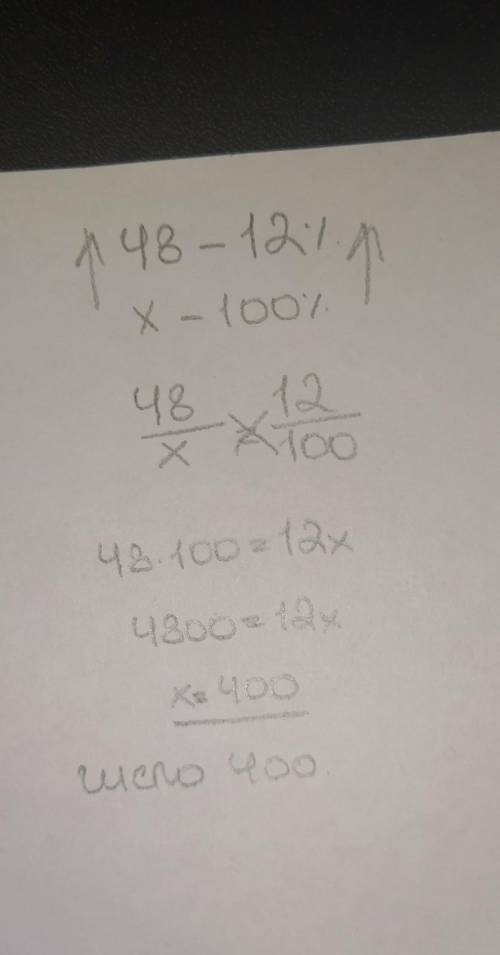 ↑ 48 – 12% ↑
x – 100%
48/x = 12/100
48·100=12x
4800=12x
x=400
число 400.